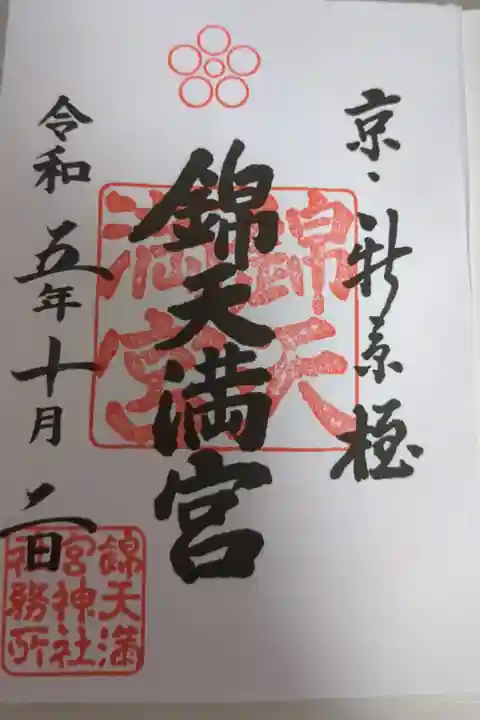 京、新京極
錦天満宮
錦天
満宮
令和五年十月二日
錦天満
宮神社
社務所